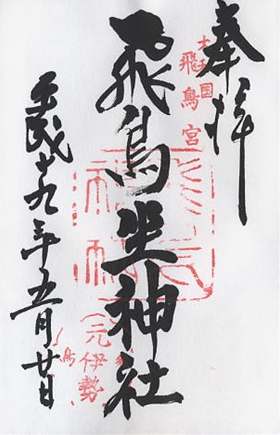 奉拝
大和国
飛鳥宮
飛鳥坐神社
(元伊勢
平成十九年五月廿日